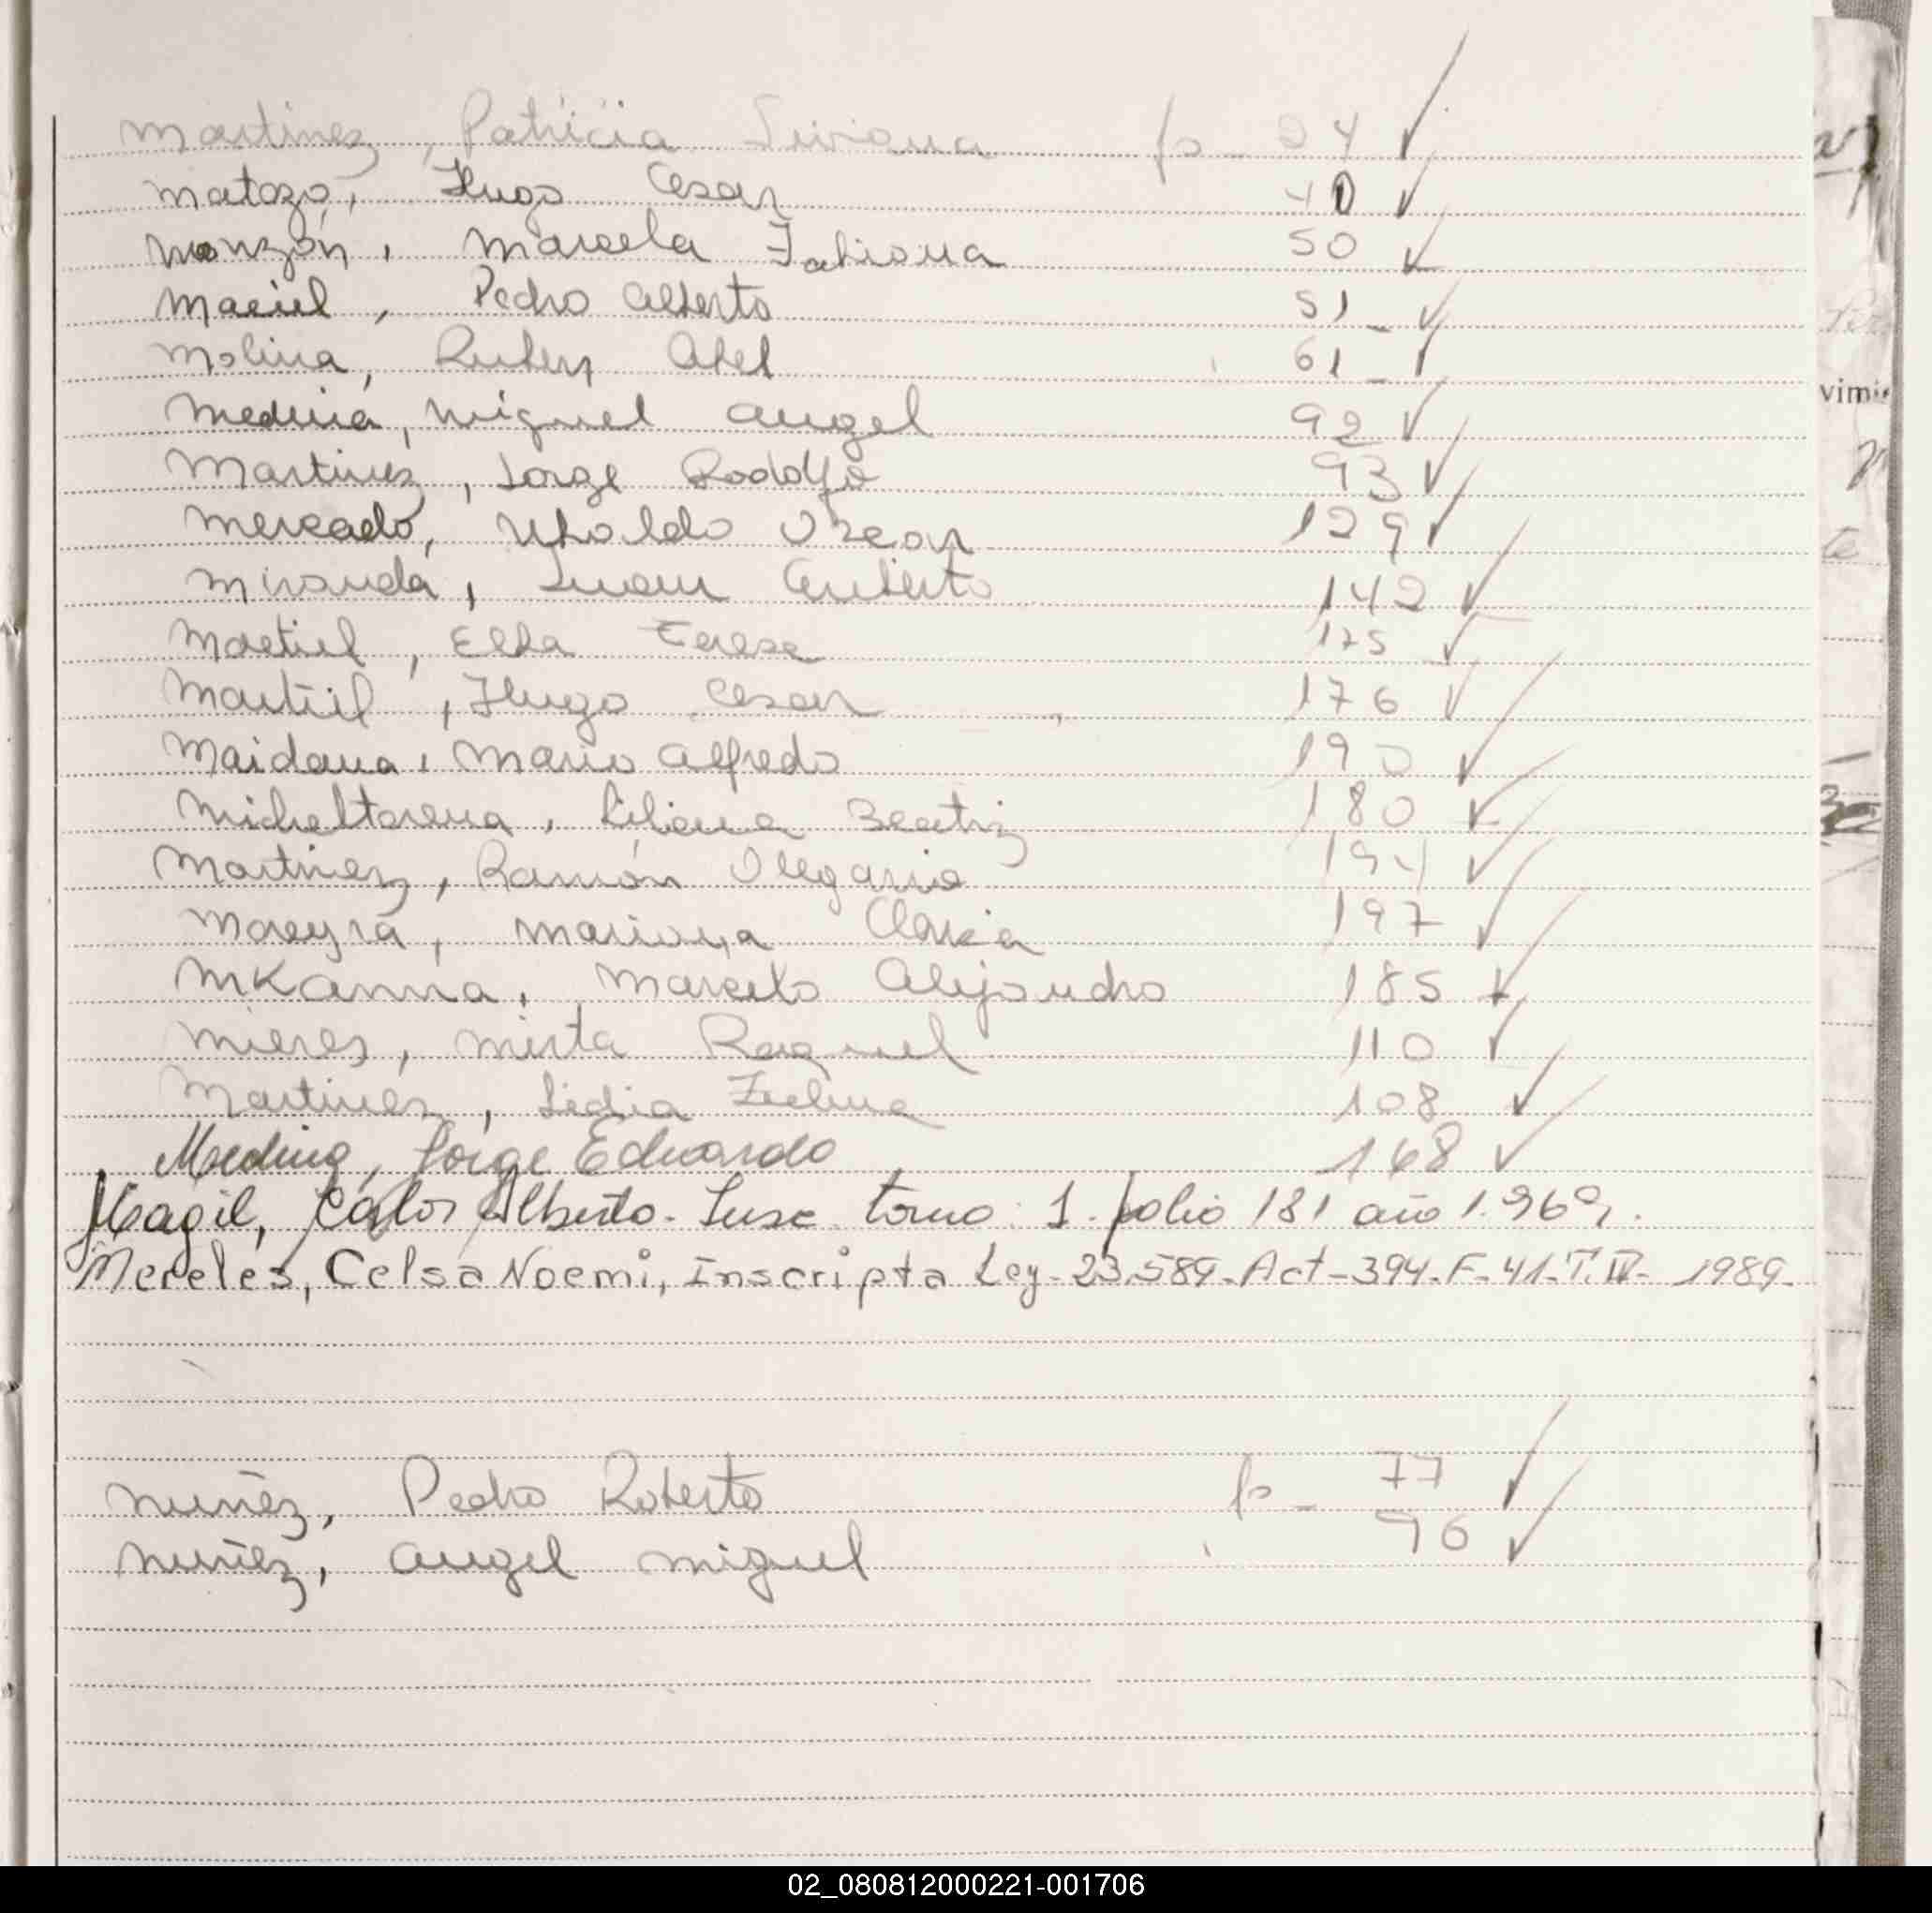 Martinez, Patricia Liviana fo - 24
Matozo, Hugo Cesar 40
Monzón, Marcela Fabiana 50
Maciel, Pedro Alberto 51 -
Molina, Ruben Abel 61 -
Medina, Miguel Angel 92
Martinez, Jorge Rodolfo 93
Mercado, Ubaldo Oscar 129
Miranda, Juan Gilberto 142
Martiel, Elba Teresa 175
Martiil, Hugo Cesar 176
Maidana, Mario Alfredo 190
Micheltorena, Liliana Beatriz 180
Martinez, Ramón Olegario 194
Moreyra, Mariana 197
MKanna, Marcelo Alejandro 185
Mieres, Mirta Raquel 110
Martinez, Lidia Zulma 108
Medina, Jorge Eduardo 168
Magil, Carlos Alberto - Insc. tomo: 1. folio 181 año 1.969.
Mereles, Celsa Noemi, Inscripta Ley-23.589-Act-394-F-41-T.IV- 1989-
Nuñez, Pedro Roberto fo - 77
Nuñez, Angel Miguel 96
vimi
02_080812000221-001706